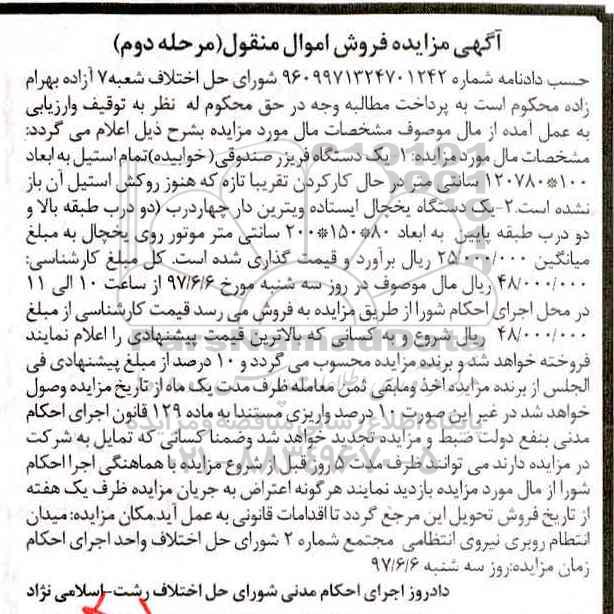 آگهی مزایده فروش اموال منقول(مرحله دوم)
حسب دادنامه شماره ۹۶۰۹۹۷۱۳۲۴۷۰۱۲۴۲ شورای حل اختلاف شعبه۷ آزاده بهرام
زاده محکوم است به پرداخت مطالبه وجه در حق محکوم له نظر به توقیف وارزیابی
به عمل آمده از مال موصوف مشخصات مال مورد مزایده بشرح ذیل اعلام می گردد:
مشخصات مال مورد مزایده: ۱- یک دستگاه فریزر صندوقی(خوابیده)تمام استیل به ابعاد
۱۰۰*۷۸*۱۲۰ سانتی متر در حال کارکردن تقریبا تازه که هنوز روکش استیل آن باز
نشده است.۲-یک دستگاه یخچال ایستاده ویترین دار چهاردرب (دو درب طبقه بالا و
دو درب طبقه پایین به ابعاد ۸۰*۱۵۰*۲۰۰ سانتی متر موتور روی یخچال به مبلغ
میانگین ۲۵/۰۰۰/۰۰۰ ریال برآورد و قیمت گذاری شده است. کل مبلغ کارشناسی:
۴۸/۰۰۰/۰۰۰ ریال مال موصوف در روز سه شنبه مورخ ۹۷/۶/۶ از ساعت ۱۰ الی ۱۱
در محل اجرای احکام شورا از طریق مزایده به فروش می رسد قیمت کارشناسی از مبلغ
۴۸/۰۰۰/۰۰۰ ریال شروع و به کسانی که بالاترین قیمت پیشنهادی را اعلام نمایند
فروخته خواهد شد و برنده مزایده محسوب می گردد و ۱۰ درصد از مبلغ پیشنهادی فی
الجلس از برنده مزایده اخذ ومابقی ثمن معامله ظرف مدت یک ماه از تاریخ مزایده وصول
خواهد شد در غیر این صورت ۱۰ درصد واریزی مستندا به ماده ۱۲۹ قانون اجرای احکام
مدنی بنفع دولت ضبط و مزایده تجدید خواهد شد وضمنا کسانی که تمایل به شرکت
در مزایده دارند می توانند ظرف مدت ۵ روز قبل از شروع مزایده با هماهنگی اجرا احکام
شورا از مال مورد مزایده بازدید نمایند هرگونه اعتراض به جریان مزایده ظرف یک هفته
از تاریخ فروش تحویل این مرجع گردد تا اقدامات قانونی به عمل آید.مکان مزایده: میدان
انتظام روبری نیروی انتظامی مجتمع شماره ۲ شورای حل اختلاف واحد اجرای احکام
زمان مزایده:روز سه شنبه ۹۷/۶/۶
دادروز اجرای احکام مدنی شورای حل اختلاف رشت-اسلامی نژاد
ParsNamadData
پایگاه اطلاع رسانی مناقصه و مزایده
۰۲۱-۸۸۳۴۹۶۷۰-۵